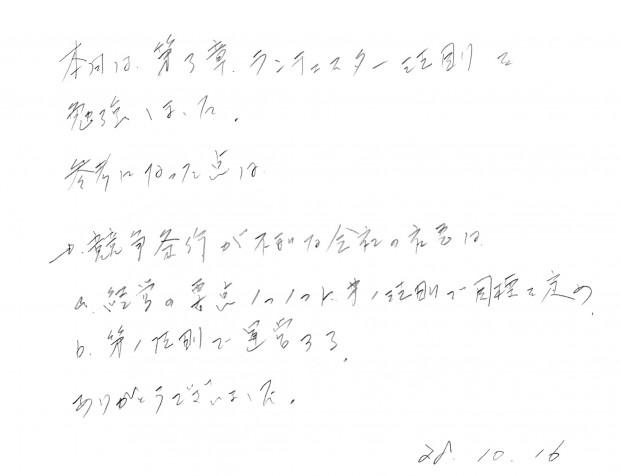 本日は、第3章、ランチェスター法則を
勉強しました。
参考になった点は
1. 競争条件が不利な会社の社長は
a. 経営の要点1つ1つに、第1法則で目標を定め、
b. 第1法則で運営する。
ありがとうございました。
28. 10. 16